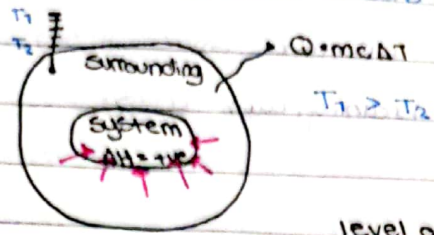 T1
T2
surrounding
Q = mcΔT
T1 > T2
system
ΔH = +ve
level o